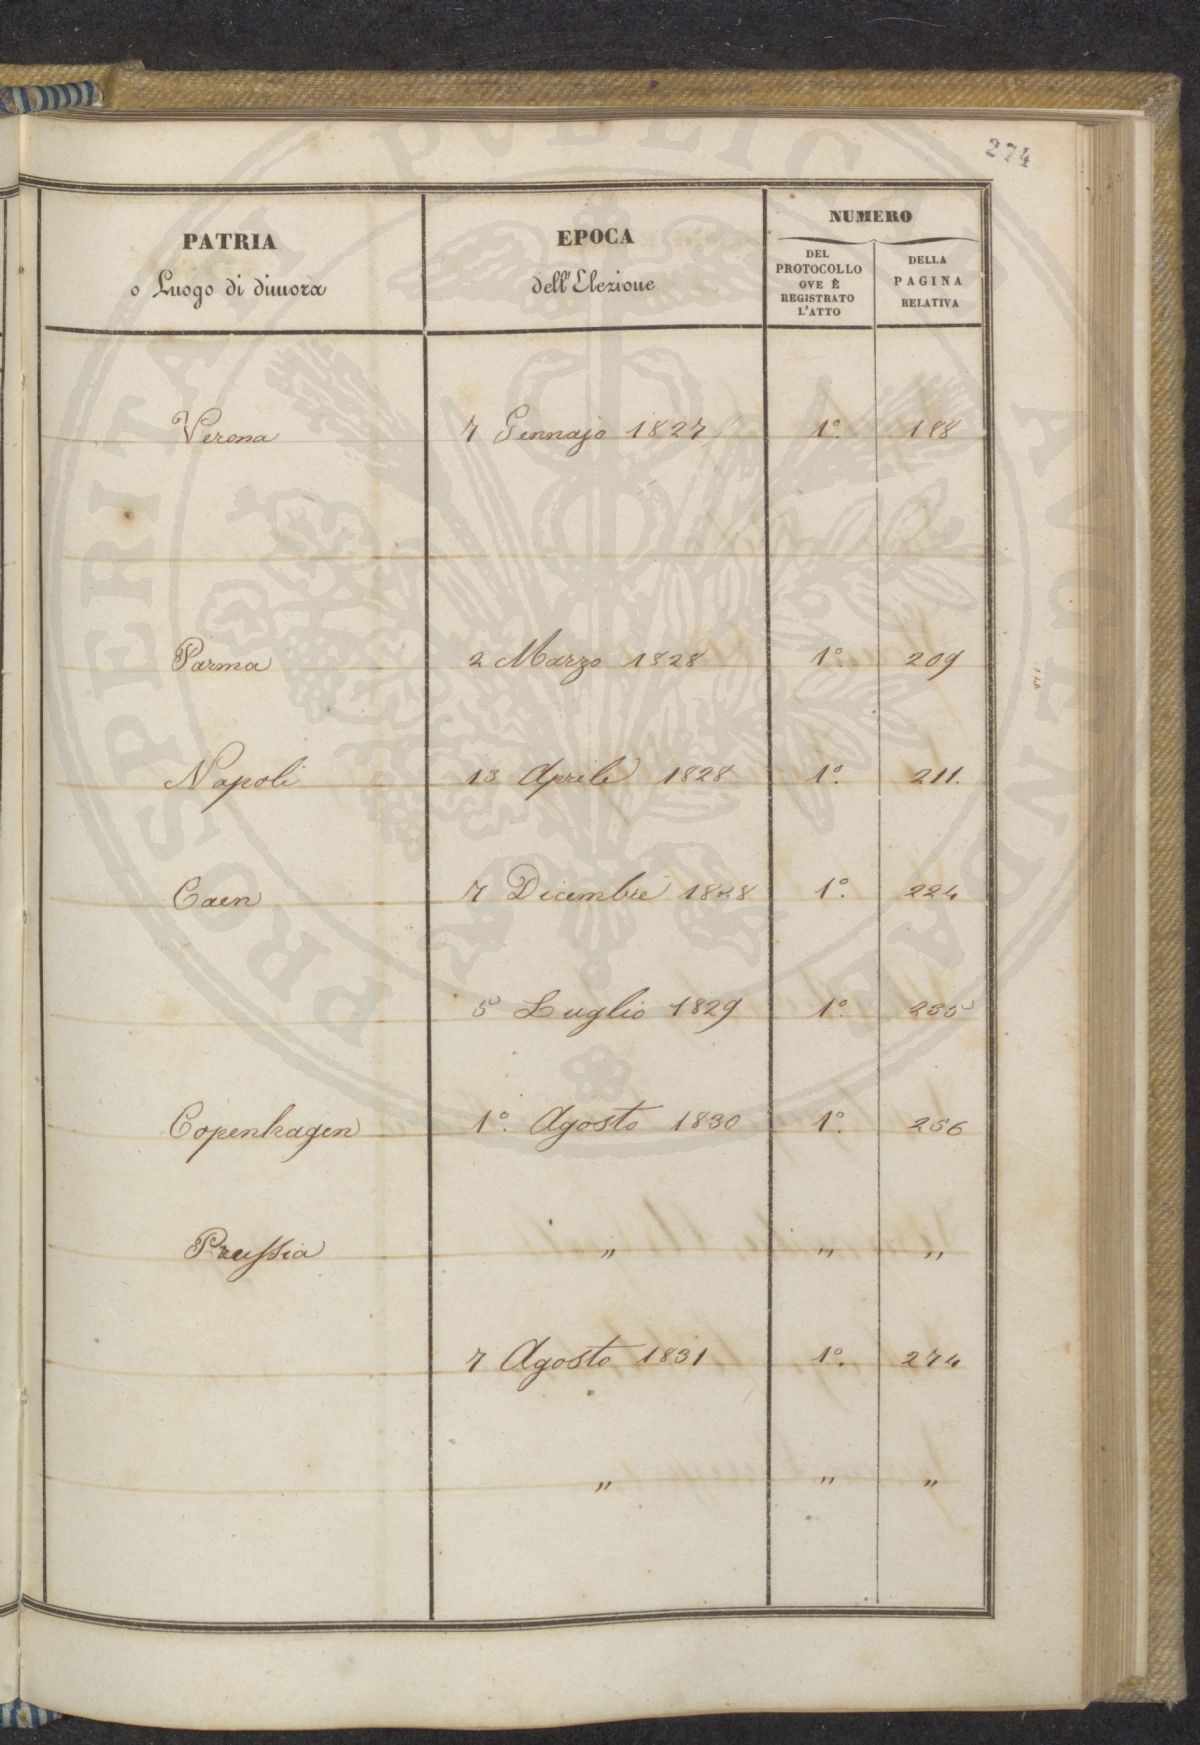 274
PATRIA
o Luogo di dimora
EPOCA
dell'Elezione
NUMERO
DEL
PROTOCOLLO
OVE È
REGISTRATO
L'ATTO
DELLA
PAGINA
RELATIVA
Verona 7 Gennajo 1827 1°. 188
Parma 2 Marzo 1828 1°. 209
Napoli 13 Aprile 1828 1°. 211.
Caen 7 Dicembre 1828 1°. 224
5 Luglio 1829 1°. 235
Copenhagen 1°. Agosto 1830 1°. 256
Prussia " " "
7 Agosto 1831 1°. 274
" " "
PROSPERITATI PUBLICAE AUGENDAE